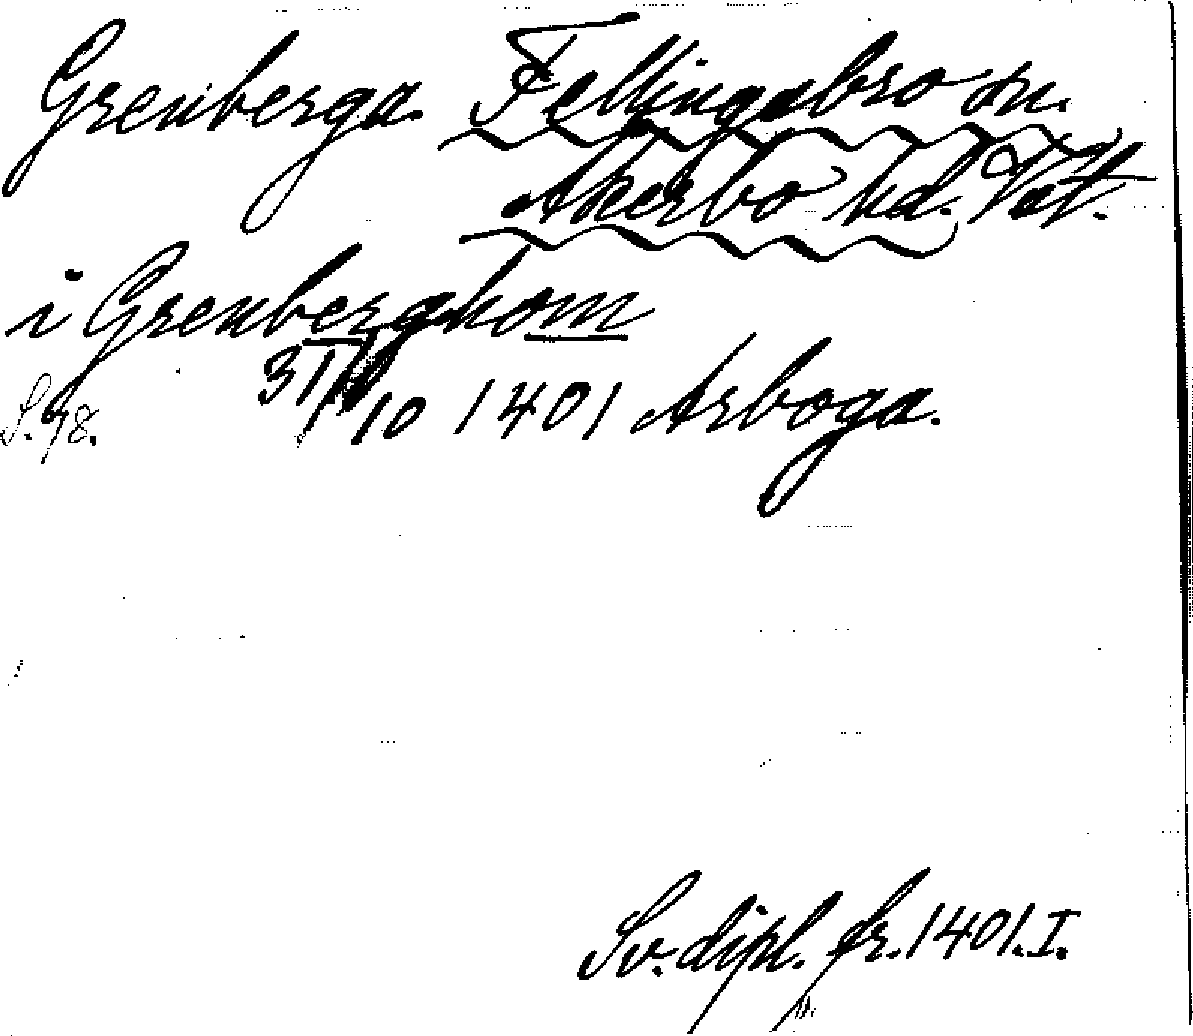 Grenberga. Fellingsbro sn.
Åkerbo hd. Väst.
i Grenberghom
S. 98. 31/10 1401 Arboga.
Sv. dipl. fr. 1401. I.